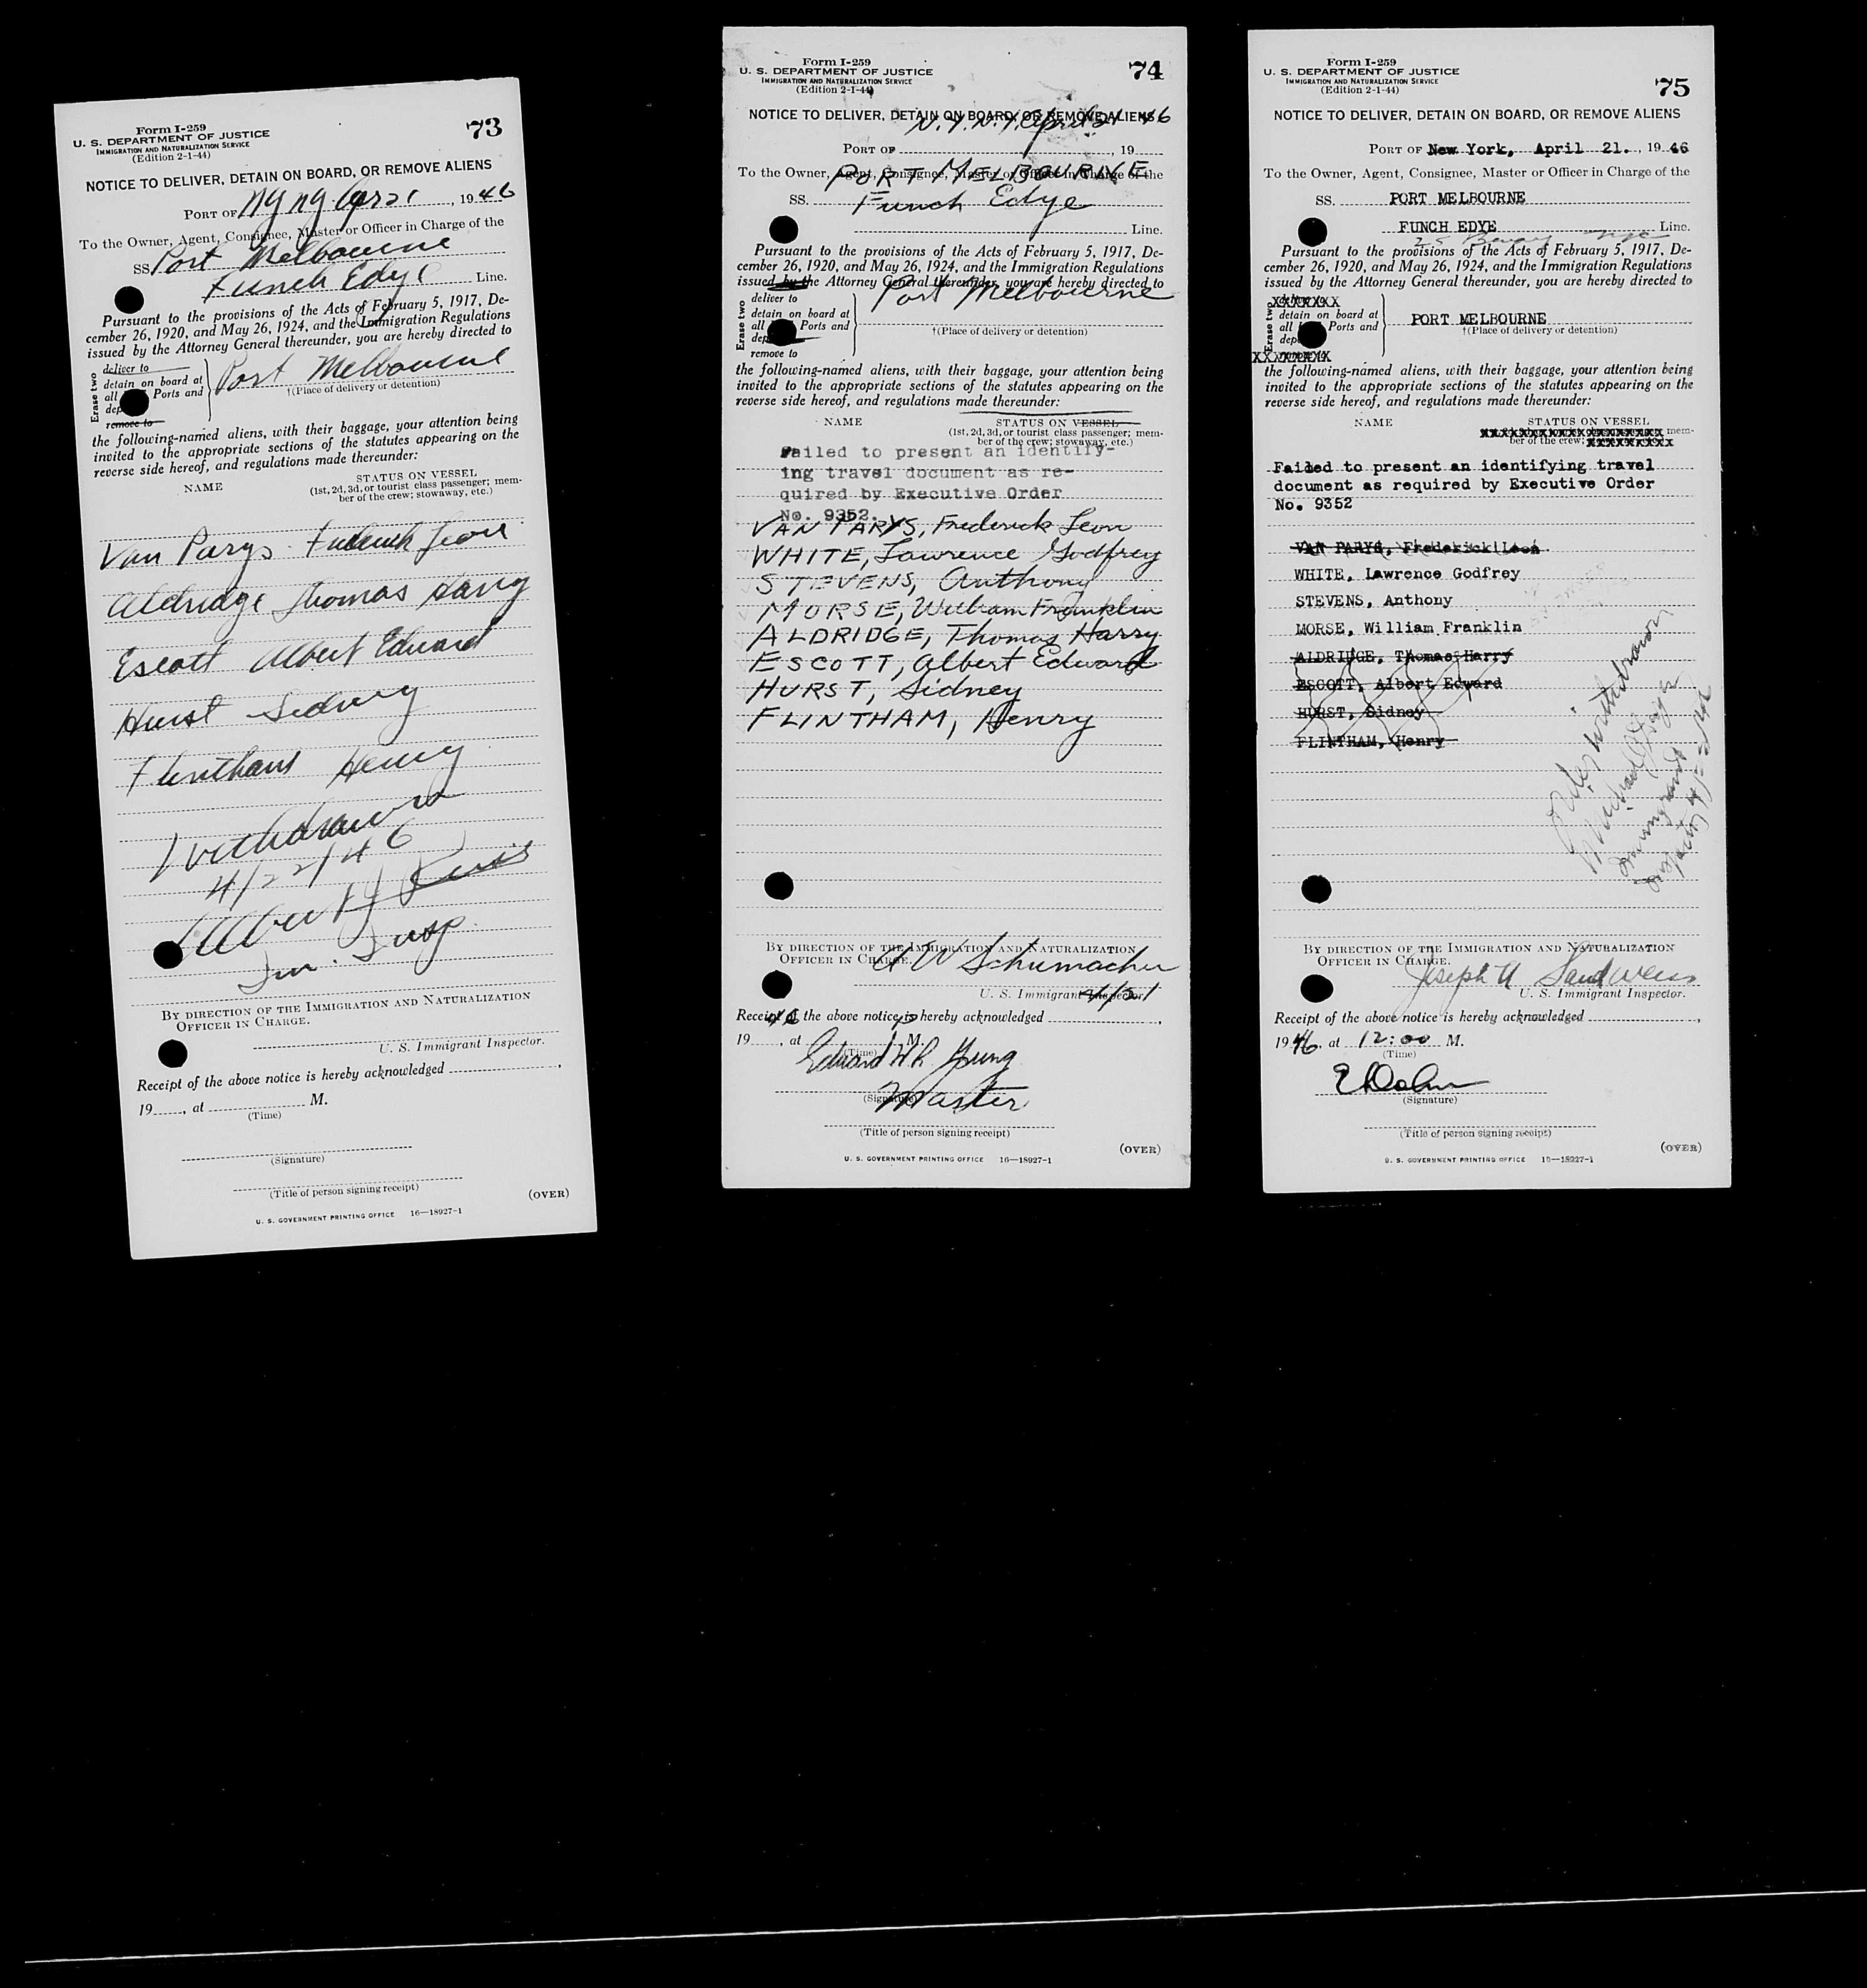 Form I-259
U. S. DEPARTMENT OF JUSTICE
IMMIGRATION AND NATURALIZATION SERVICE
(Edition 2-1-44)
73
NOTICE TO DELIVER, DETAIN ON BOARD, OR REMOVE ALIENS
PORT OF NY NY Apr 21, 1946
To the Owner, Agent, Consignee, Master or Officer in Charge of the
SS. Port Melbourne
Funch Edye Line.
Pursuant to the provisions of the Acts of February 5, 1917, De-
cember 26, 1920, and May 26, 1924, and the Immigration Regulations
issued by the Attorney General thereunder, you are hereby directed to
Erase two
deliver to
detain on board at
all Ports and
dep
remove to
Port Melbourne
†(Place of delivery or detention)
the following-named aliens, with their baggage, your attention being
invited to the appropriate sections of the statutes appearing on the
reverse side hereof, and regulations made thereunder:
NAME
STATUS ON VESSEL
(1st, 2d, 3d, or tourist class passenger; mem-
ber of the crew; stowaway, etc.)
Van Parys Frederick Leon
Aldridge Thomas Harry
Escott Albert Edward
Hurst Sidney
Flintham Henry
Withdrawn
4/22/46
Albert J
Im. Insp.
BY DIRECTION OF THE IMMIGRATION AND NATURALIZATION
OFFICER IN CHARGE.
U. S. Immigrant Inspector.
Receipt of the above notice is hereby acknowledged ,
19 , at M.
(Time)
(Signature)
(Title of person signing receipt)
(OVER)
U. S. GOVERNMENT PRINTING OFFICE 16—18927-1
Form I-259
U. S. DEPARTMENT OF JUSTICE
IMMIGRATION AND NATURALIZATION SERVICE
(Edition 2-1-44)
74
NOTICE TO DELIVER, DETAIN ON BOARD, OR REMOVE ALIENS
N.Y.N.Y. April 21 46
PORT OF , 19
To the Owner, Agent, Consignee, Master or Officer in Charge of the
PORT MELBOURNE
SS. Funch Edye
Line.
Pursuant to the provisions of the Acts of February 5, 1917, De-
cember 26, 1920, and May 26, 1924, and the Immigration Regulations
issued by the Attorney General thereunder, you are hereby directed to
Erase two
deliver to
detain on board at
all Ports and
dep
remove to
Port Melbourne
†(Place of delivery or detention)
the following-named aliens, with their baggage, your attention being
invited to the appropriate sections of the statutes appearing on the
reverse side hereof, and regulations made thereunder:
NAME
STATUS ON VESSEL
(1st, 2d, 3d, or tourist class passenger; mem-
ber of the crew; stowaway, etc.)
Failed to present an identify-
ing travel document as re-
quired by Executive Order
No. 9352.
VAN PARYS, Frederick Leon
WHITE, Lawrence Godfrey
STEVENS, Anthony
MORSE, William Franklin
ALDRIDGE, Thomas Harry
ESCOTT, Albert Edward
HURST, Sidney
FLINTHAM, Henry
BY DIRECTION OF THE IMMIGRATION AND NATURALIZATION
OFFICER IN CHARGE.
A W Schumacher
U. S. Immigrant Inspector.
4/21
Receipt of the above notice is hereby acknowledged ,
46
19 , at 1 P M.
(Time)
Edward W. R. Young
(Signature)
Master
(Title of person signing receipt)
(OVER)
U. S. GOVERNMENT PRINTING OFFICE 16—18927-1
Form I-259
U. S. DEPARTMENT OF JUSTICE
IMMIGRATION AND NATURALIZATION SERVICE
(Edition 2-1-44)
75
NOTICE TO DELIVER, DETAIN ON BOARD, OR REMOVE ALIENS
PORT OF New York, April 21. , 19 46
To the Owner, Agent, Consignee, Master or Officer in Charge of the
SS. PORT MELBOURNE
FUNCH EDYE Line.
25 Beaver NYC
Pursuant to the provisions of the Acts of February 5, 1917, De-
cember 26, 1920, and May 26, 1924, and the Immigration Regulations
issued by the Attorney General thereunder, you are hereby directed to
Erase two
XXXXXXX
detain on board at
all Ports and
dep
XXXXXXXX
PORT MELBOURNE
†(Place of delivery or detention)
the following-named aliens, with their baggage, your attention being
invited to the appropriate sections of the statutes appearing on the
reverse side hereof, and regulations made thereunder:
NAME
STATUS ON VESSEL
XXXXXXXXXXXXXXXXXXXXX mem-
ber of the crew; XXXXXXXXXX
Failed to present an identifying travel
document as required by Executive Order
No. 9352
VAN PARYS, Frederick Leon
WHITE, Lawrence Godfrey
STEVENS, Anthony
MORSE, William Franklin
ALDRIDGE, Thomas Harry
ESCOTT, Albert Edward
HURST, Sidney
FLINTHAM, Henry
Order withdrawn
Michael
Immigrant
Inspector
BY DIRECTION OF THE IMMIGRATION AND NATURALIZATION
OFFICER IN CHARGE.
Joseph A Sandweiss
U. S. Immigrant Inspector.
Receipt of the above notice is hereby acknowledged ,
19 46, at 12:00 M.
(Time)
(Signature)
(Title of person signing receipt)
(OVER)
U. S. GOVERNMENT PRINTING OFFICE 16—18927-1